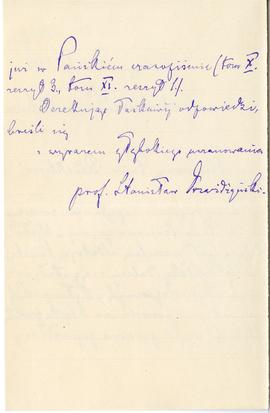 już w Pańskiem czasopiśmie (tom X.
zeszyt 3., tom XI. zeszyt 1).
Oczekując łaskawej odpowiedzi,
kreśli się
z wyrazem głębokiego uszanowania
prof. Stanisław